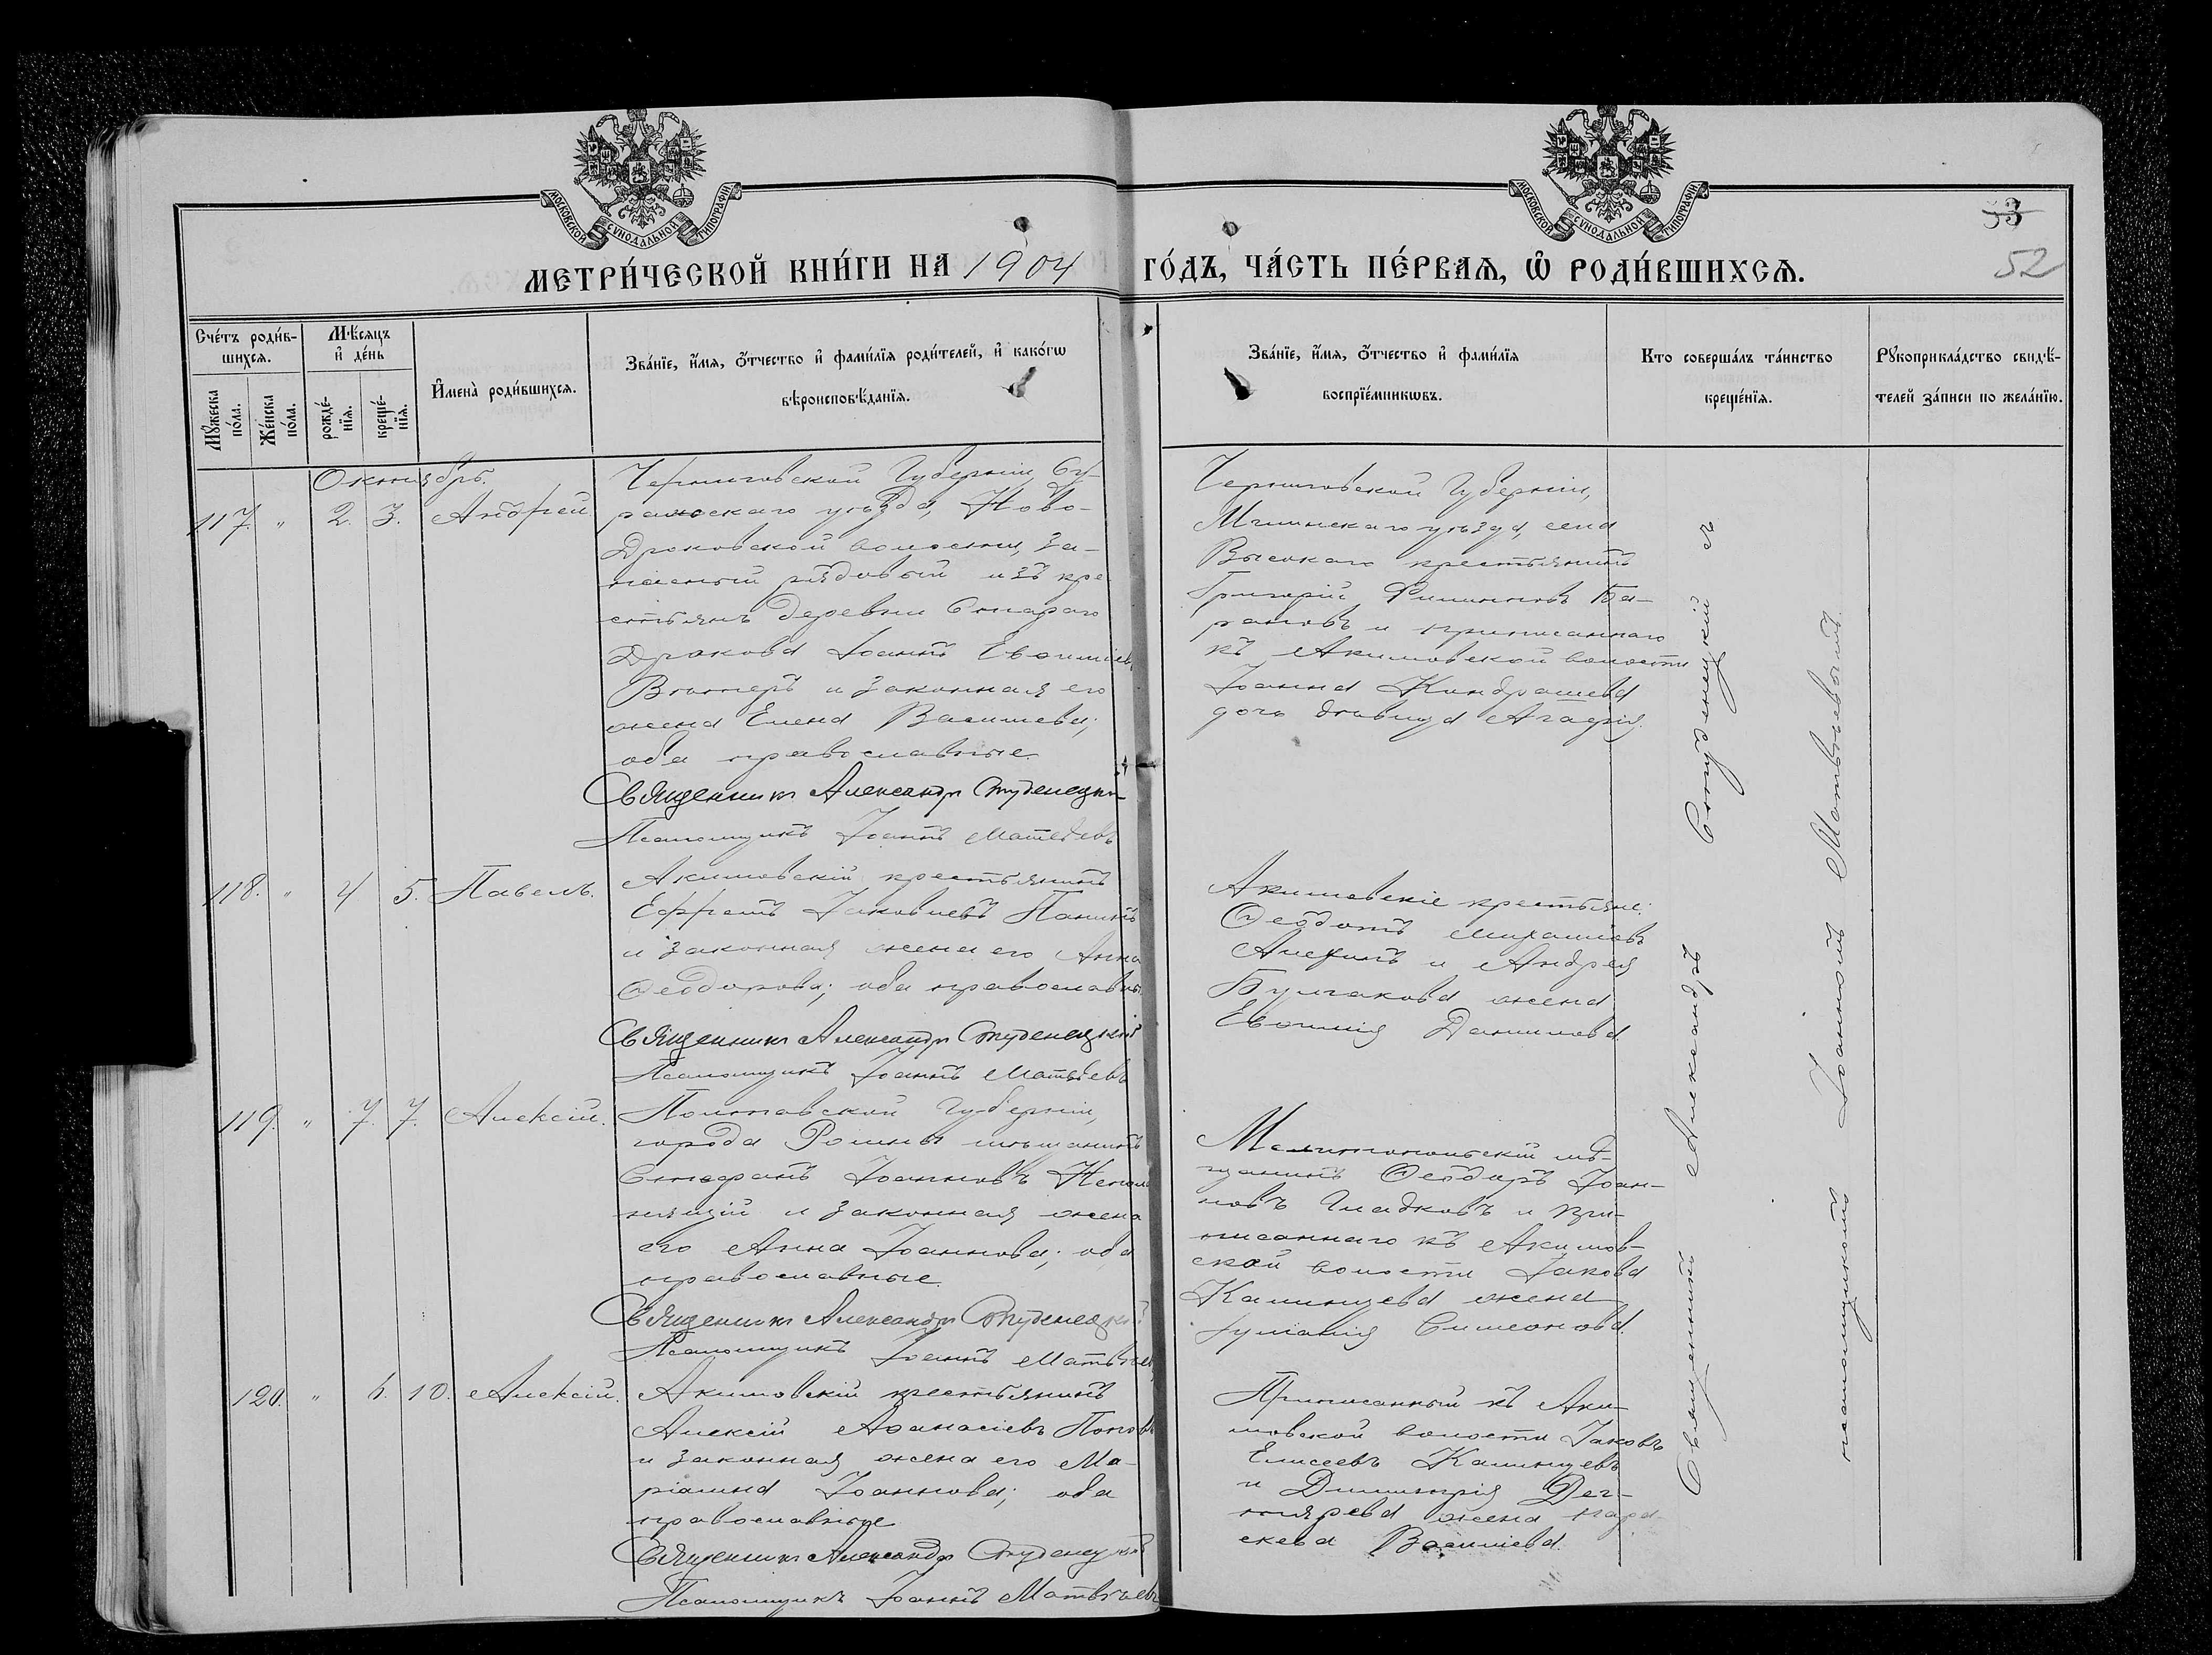 МОСКОВСКОЙ СѴНОДАЛЬНОЙ ТИПОГРАФІИ
МОСКОВСКОЙ СѴНОДАЛЬНОЙ ТИПОГРАФІИ
53
52
МЕТРИ́ЧЕСКОЙ КНИ́ГИ НА 1904 ГО́ДЪ, ЧА́СТЬ ПЕ́РВАѦ, Ѡ҆ РОДИ́ВШИХСѦ.
Сче́тъ роди́в-
шихсѧ.
Мꙋ́жеска по́ла.
Же́нска по́ла.
Мѣ́сѧцъ и҆ де́нь
рожде́-нїѧ.
креще́-нїѧ.
И҆мена̀ роди́вшихсѧ.
Зва́нїе, и҆́мѧ, ѻ҆́тчество и҆ фами́лїѧ роди́телей, и҆ како́гѡ
вѣроисповѣ́данїѧ.
Зва́нїе, и҆́мѧ, ѻ҆́тчество и҆ фами́лїѧ
воспрїе́мникѡвъ.
Кто соверша́лъ та́инство
креще́нїѧ.
Рꙋкоприкла́дство свидѣ́-
телей за́писи по жела́нїю.
Октябрь.
117. " 2. 3. Андрей
Черниговской Губерніи, Су-
ражскаго уѣзда, Ново-
Дроковской волости, за-
пасный рядовый изъ кре
стьянъ деревни Стараго
Дрокова Іоаннъ Евѳиміевъ
и законная его
жена Елена Васильева;
оба православные.
Священникъ Александръ Студенецкій
Псаломщикъ Іоаннъ Матвѣевъ
Черниговской Губерніи,
Мглинскаго уѣзда, села
Высокаго крестьянинъ
Григорій Филипповъ Ба-
рановъ и приписаннаго
къ Акимовской волости
Іоанна Кондрашева
дочь дѣвица Агафія.
118. " 4 5. Павелъ.
Акимовскій крестьянинъ
Ефремъ Іаковлевъ Панинъ
и законная жена его Анна
Ѳеодорова; оба православн.
Священникъ Александръ Студенецкій
Псаломщикъ Іоаннъ Матвѣевъ
Акимовскіе крестьяне:
Ѳеодотъ Михаиловъ
Алехинъ и Андрея
Булгакова жена
Евѳимія Данилова
119. " 7. 7. Алексій.
Полтавской Губерніи,
города Ромны мѣщанинъ
Стефанъ Іоанновъ
и законная жена
его Анна Іоаннова; оба
православные.
Священникъ Александръ Студенецкій
Псаломщикъ Іоаннъ Матвѣевъ
Мелитопольскій мѣ-
щанинъ Ѳеодоръ Іоан-
новъ Гладковъ и при-
писаннаго къ Акимов-
ской волости Іакова
Калинцева жена
Іуліанія Симеонова.
120. " 6. 10. Алексій.
Акимовскій крестьянинъ
Алексій Аѳанасіевъ Поповъ
и законная жена его Ма-
ріамна Іоаннова; оба
православные
Священникъ Александръ Студенецкій
Псаломщикъ Іоаннъ Матвѣевъ
Приписанный къ Аки-
мовской волости Іаковъ
Елисеевъ Калинцевъ
и Димитрія Дег-
тярева жена Пара-
скева Васильева.
Священникъ Александръ Студенецкій съ
псаломщикомъ Іоанномъ Матвѣевымъ.